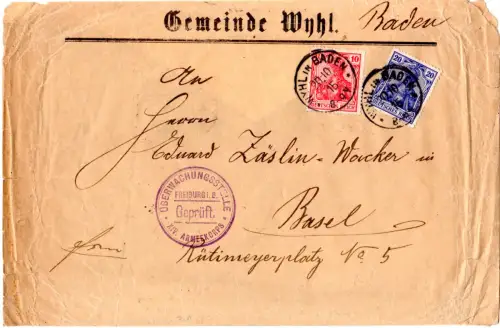 Gemeinde Wyhl. Baden
An
Herrn
Eduard Zäslin-Wacker in
Basel
Rütimeyerplatz No 5
WYHL IN BADEN
10
WYHL IN BADEN
20 20
ÜBERWACHUNGSSTELLE
FREIBURG I. B.
Geprüft.
XIV. ARMEEKORPS